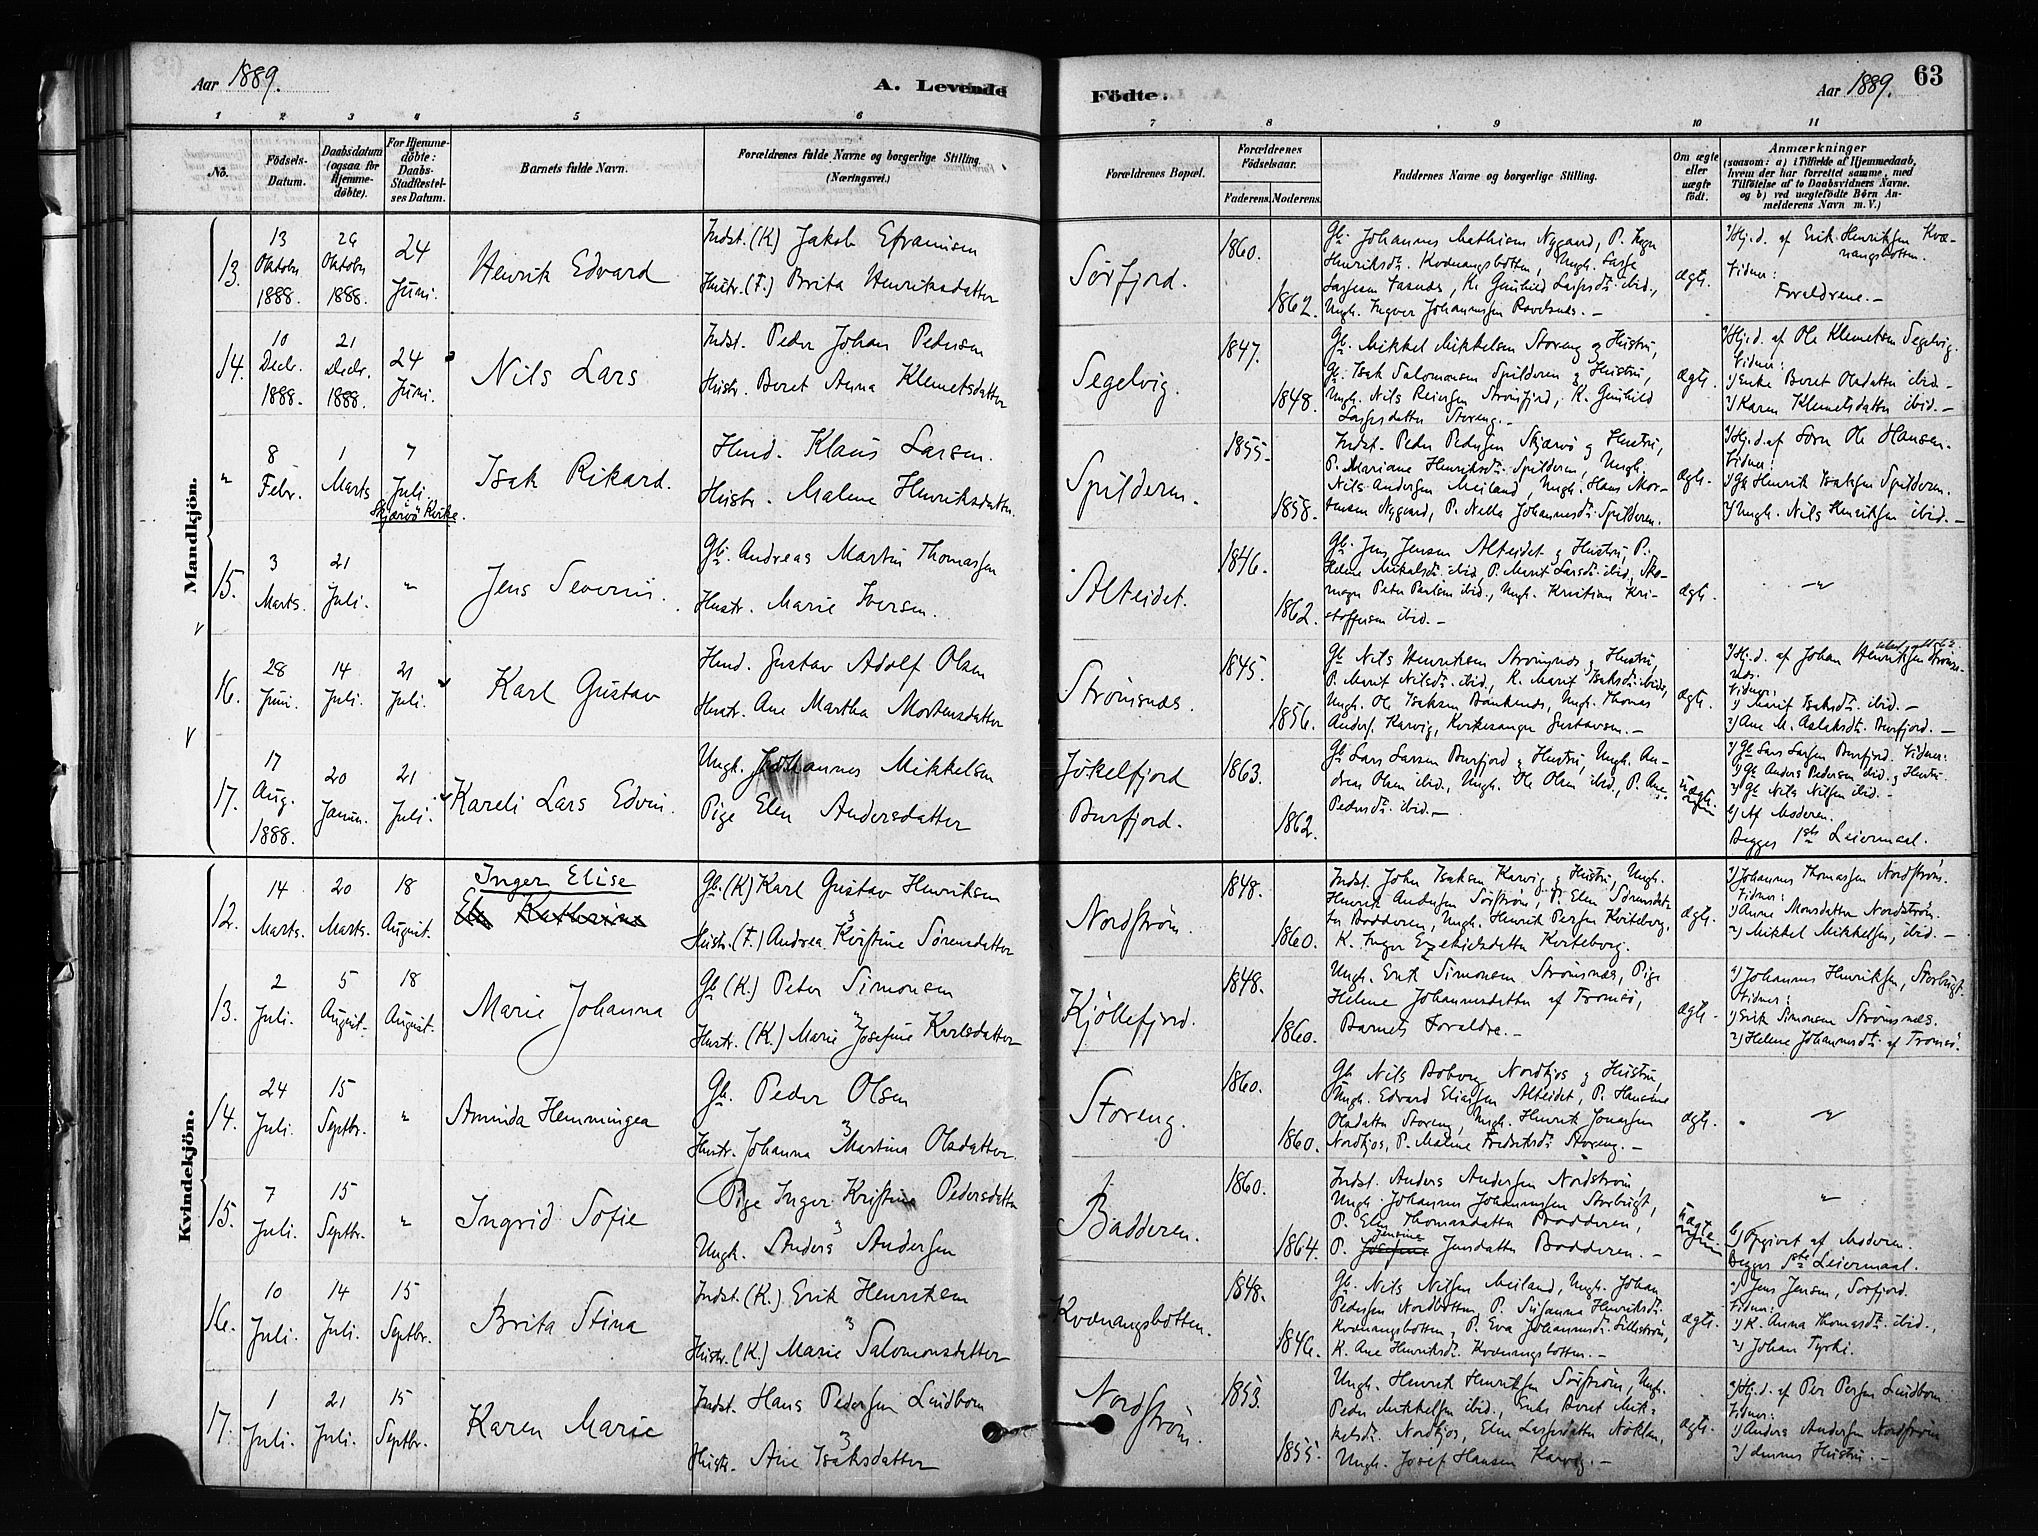 Aar 1889. A. Levende Födte. Aar 1889. 63
1 2 3 4 5 6 7 8 9 10 11
No.
Födsels-Datum.
Daabsdatum (ogsaa for Hjemme-döbte).
For Hjemme-döbte: Daabs-Stadfæstel-ses Datum.
Barnets fulde Navn.
Forældrenes fulde Navne og borgerlige Stilling. (Næringsvei.)
Forældrenes Bopæl.
Forældrenes Födselsaar.
Faderens. Moderens.
Faddernes Navne og borgerlige Stilling.
Om ægte eller uægte födt.
Anmærkninger
(saasom: a) i Tilfælde af Hjemmedaab,
hvem der har forrettet samme, med
Tilföielse af to Daabsvidners Navne.
og b) ved uægtefödte Börn An-
melderens Navn m. V.)
Mandkjön.
13. 13 Oktober 1888. 26 Oktober 1888. 24 Juni. Henrik Edvard
Indst. (K) Jakob Efraimsen
Hustr. (F.) Brita Henriksdatter
Sørfjord. 1860. 1862.
Gb. Johannes Mathisen Nygaard, P. Inger
Henriksdt. Kvænangsbotten, Ungk. Lasse
ægte.
a) Hj.d. af Erik Henriksen Kvæ-
nangsbotten.
Vidner:
Forældrene.-
14. 10 Decbr. 1888. 21 Decbr. 1888. 24 Juni. Nils Lars
Indst. Peder Johan Pedersen
Hustr. Beret Anna Klemetsdatter
Segelvig. 1847. 1848.
Gb. Mikkel Mikkelsen Storeng og Hustru,
Gb. Isak Salomonsen Spilderen og Hustru,
Ungk. Nils Reiersen Strømfjord, K. Gunhild
Lassesdatter Storeng.-
ægte.
a) Hj.d. af Ole Klemetsen Segelvig.
Vidner:
1) Enke Beret Olsdatter ibid.-
2) Karen Klemetsdatter ibid.-
" 8 Febr. 1 Marts 7 Juli. Skjærvö Kirke. Isak Rikard.
Hmd. Klaus Larsen.
Hustr. Malene Henriksdatter.
Spilderen. 1855. 1858.
Indst. Peder Pedersen Skjærvö og Hustru,
P. Mariane Henriksdt. Spilderen, Ungk.
Nils Andersen Meiland, Ungk. Hans Mor-
tensen Nygaard, P. Nella Johannesdt. Spilderen.
ægte.
a) Hj.d. af Sören Ole Hansen.
Vidner:
1) Gb. Henrik Isaksen Spilderen.
2) Ungk. Nils Henriksen ibid.-
15. 3 Marts. 21 Juli. " Jens Severin.
Gb. Andreas Martin Thomassen
Hustr. Marie Iversen.
Alteidet. 1846. 1862.
Gb. Jens Jensen Alteidet og Hustru, P.
Helene Mikalsdt. ibid, P. Marit Larsdt. ibid, Sko-
mager Peter Paulsen ibid., Ungk. Kristian Kri-
stoffersen ibid.-
ægte. "
16. 28 Juni. 14 Juli. 21 Juli. Karl Gustav
Hmd. Gustav Adolf Olsen
Hustr. Ane Martha Mortensdatter
Strömsnæs. 1845. 1856.
Gb. Nils Henriksen Strömsnæs og Hustru,
P. Marit Nilsdt. ibid., K. Marit Isaksdt. ibid,
Ungk. Ole Isaksen Bankenæs, Ungk. Thomas
Anders. Karvig, Kirkesanger Gustavsen.-
ægte.
a) Hj.d. af Johan Henriksen Ströms-
næs.
Vidner:
1) Marit Isaksdt. ibid.-
2) Ane M. Aslaksdt. Burfjord.-
17. 17 Aug. 1888. 20 Januar. 21 Juli. Kareli Lars Edvin.
Ungk. Johannes Mikkelsen
Pige Elen Andersdatter
Jökelfjord Burfjord. 1863. 1862.
Gb. Lars Larsen Burfjord og Hustru, Ungk. An-
dreas Olsen ibid., Ungk. Ole Olsen ibid., P. Ane
Pedersdt. ibid.-
uægte
a) Gb. Lars Larsen Burfjord. Vidner:
1) Gb. Anders Pedersen ibid. og Hustru.
2) Gb. Nils Nilsen ibid.-
b) Af Moderen.
Begges 1ste Leiermaal.
Kvindekjön.
12. 14 Marts. 20 Marts. 18 August. Inger Elise
Gb. (K) Karl Gustav Henriksen
Hustr. (F.) Andrea Kristine Sørensdatter
Nordström. 1848. 1860.
Indst. John Isaksen Karvig og Hustru, Ungk.
Henrik Andersen Sörström, P. Elen Sörensdat-
ter Badderen, Ungk. Henrik Persen Kviteberg,
K. Inger Ezekielsdatter Kviteberg.
ægte.
a) Johannes Thomassen Nordström.
Vidner:
1) Anne Monsdatter Nordström.
2) Mikkel Mikkelsen, ibid.-
13. 2 Juli. 5 August. 18 August. Marie Johanna
Gb. (K.) Peter Simonsen
Hustr. (K.) Marie Josefine Karlsdatter
Kjöllefjord. 1848. 1860.
Ungk. Erik Simonsen Strömsnæs, Pige
Helene Johannesdatter af Tromsö,
Barnets Forældre.-
ægte.
a) Johannes Henriksen, Storbugt.
Vidner:
1) Erik Simonsen Strömsnæs.
2) Helene Johannesdt. af Tromsö.
14. 24 Juli. 15 Septbr. " Aminda Hemmingea
Gb. Peder Olsen
Hustr. Johanna Martina Olsdatter.
Storeng. 1860. 1860.
Gb. Nils Boberg Nordkjos og Hustru,
Ungk. Edvard Eliassen Alteidet, P. Hansine
Olsdatter Storeng, Ungk. Henrik Jonassen
Nordkjos, P. Maline Fredriksdt. Storeng.-
ægte. "
15. 7 Juli. 15 Septbr. " Ingrid Sofie
Pige Inger Kristine Pedersdatter
Ungk. Anders Andersen
Badderen. 1860. 1864.
Indst. Anders Andersen Nordström,
Ungk. Johannes Johannessen Storbugt,
P. Elen Thomasdatter Badderen,
P. Jensine Jensdatter Badderen.-
uægte
"
b) Opgivet af Moderen.
Begges 1ste Leiermaal.
16. 10 Juli. 14 Juli. 15 Septbr. Brita Stina
Indst. (K.) Erik Henriksen
Hustr. (K.) Marie Salomonsdatter
Kvænangsbotten. 1848. 1846.
Gb. Nils Nilsen Meiland, Ungk. Johan
Pedersen Nordbotten, P. Susanna Henriksdt.
Kvænangsbotten, P. Eva Johannesdt.
K. Ane Henriksdt. Kvænangsbotten.-
ægte.
a) Jens Jensen, Sörfjord.
Vidner:
1) K. Anna Thomasdt. ibid.,
2) Johan Tyrki.
17. 1 Juli. 21 Juli. 15 Septbr. Karen Marie
Indst. Hans Pedersen Lindbom
Hustr. Ane Isaksdatter
Nordström. 1853. 1855.
Ungk. Henrik Henriksen Sörström, Ungk.
Peder Mikkelsen ibid., Enke Beret Mik-
kelsdt. Nordkjos, Elen Lassesdatter
Ungk. Josef Hansen Karvig.-
ægte.
a) Hj.d. af Per Persen Lindbom.
Vidner:
1) Anders Andersen Nordström
2) dennes Hustru.-